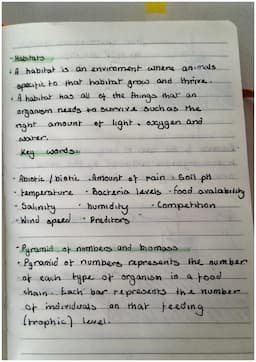 - Habitats
• A habitat is an enviroment where animals
specific to that habitat grow and thrive.
• A habitat has all of the things that an
organism needs to survive such as the
right amount of light, oxygen and
water.
Key words:
• Abiotic / biotic • Amount of rain • Soil pH
• temperature • Bacteria levels • food availability
• Salinity • humidity • Competition
• Wind speed • Preditors
- Pyramid of numbers and biomass
• Pyramid of numbers represents the number
of each type of organism in a food
chain. Each bar represents the number
of individuals on that feeding
(trophic) level.